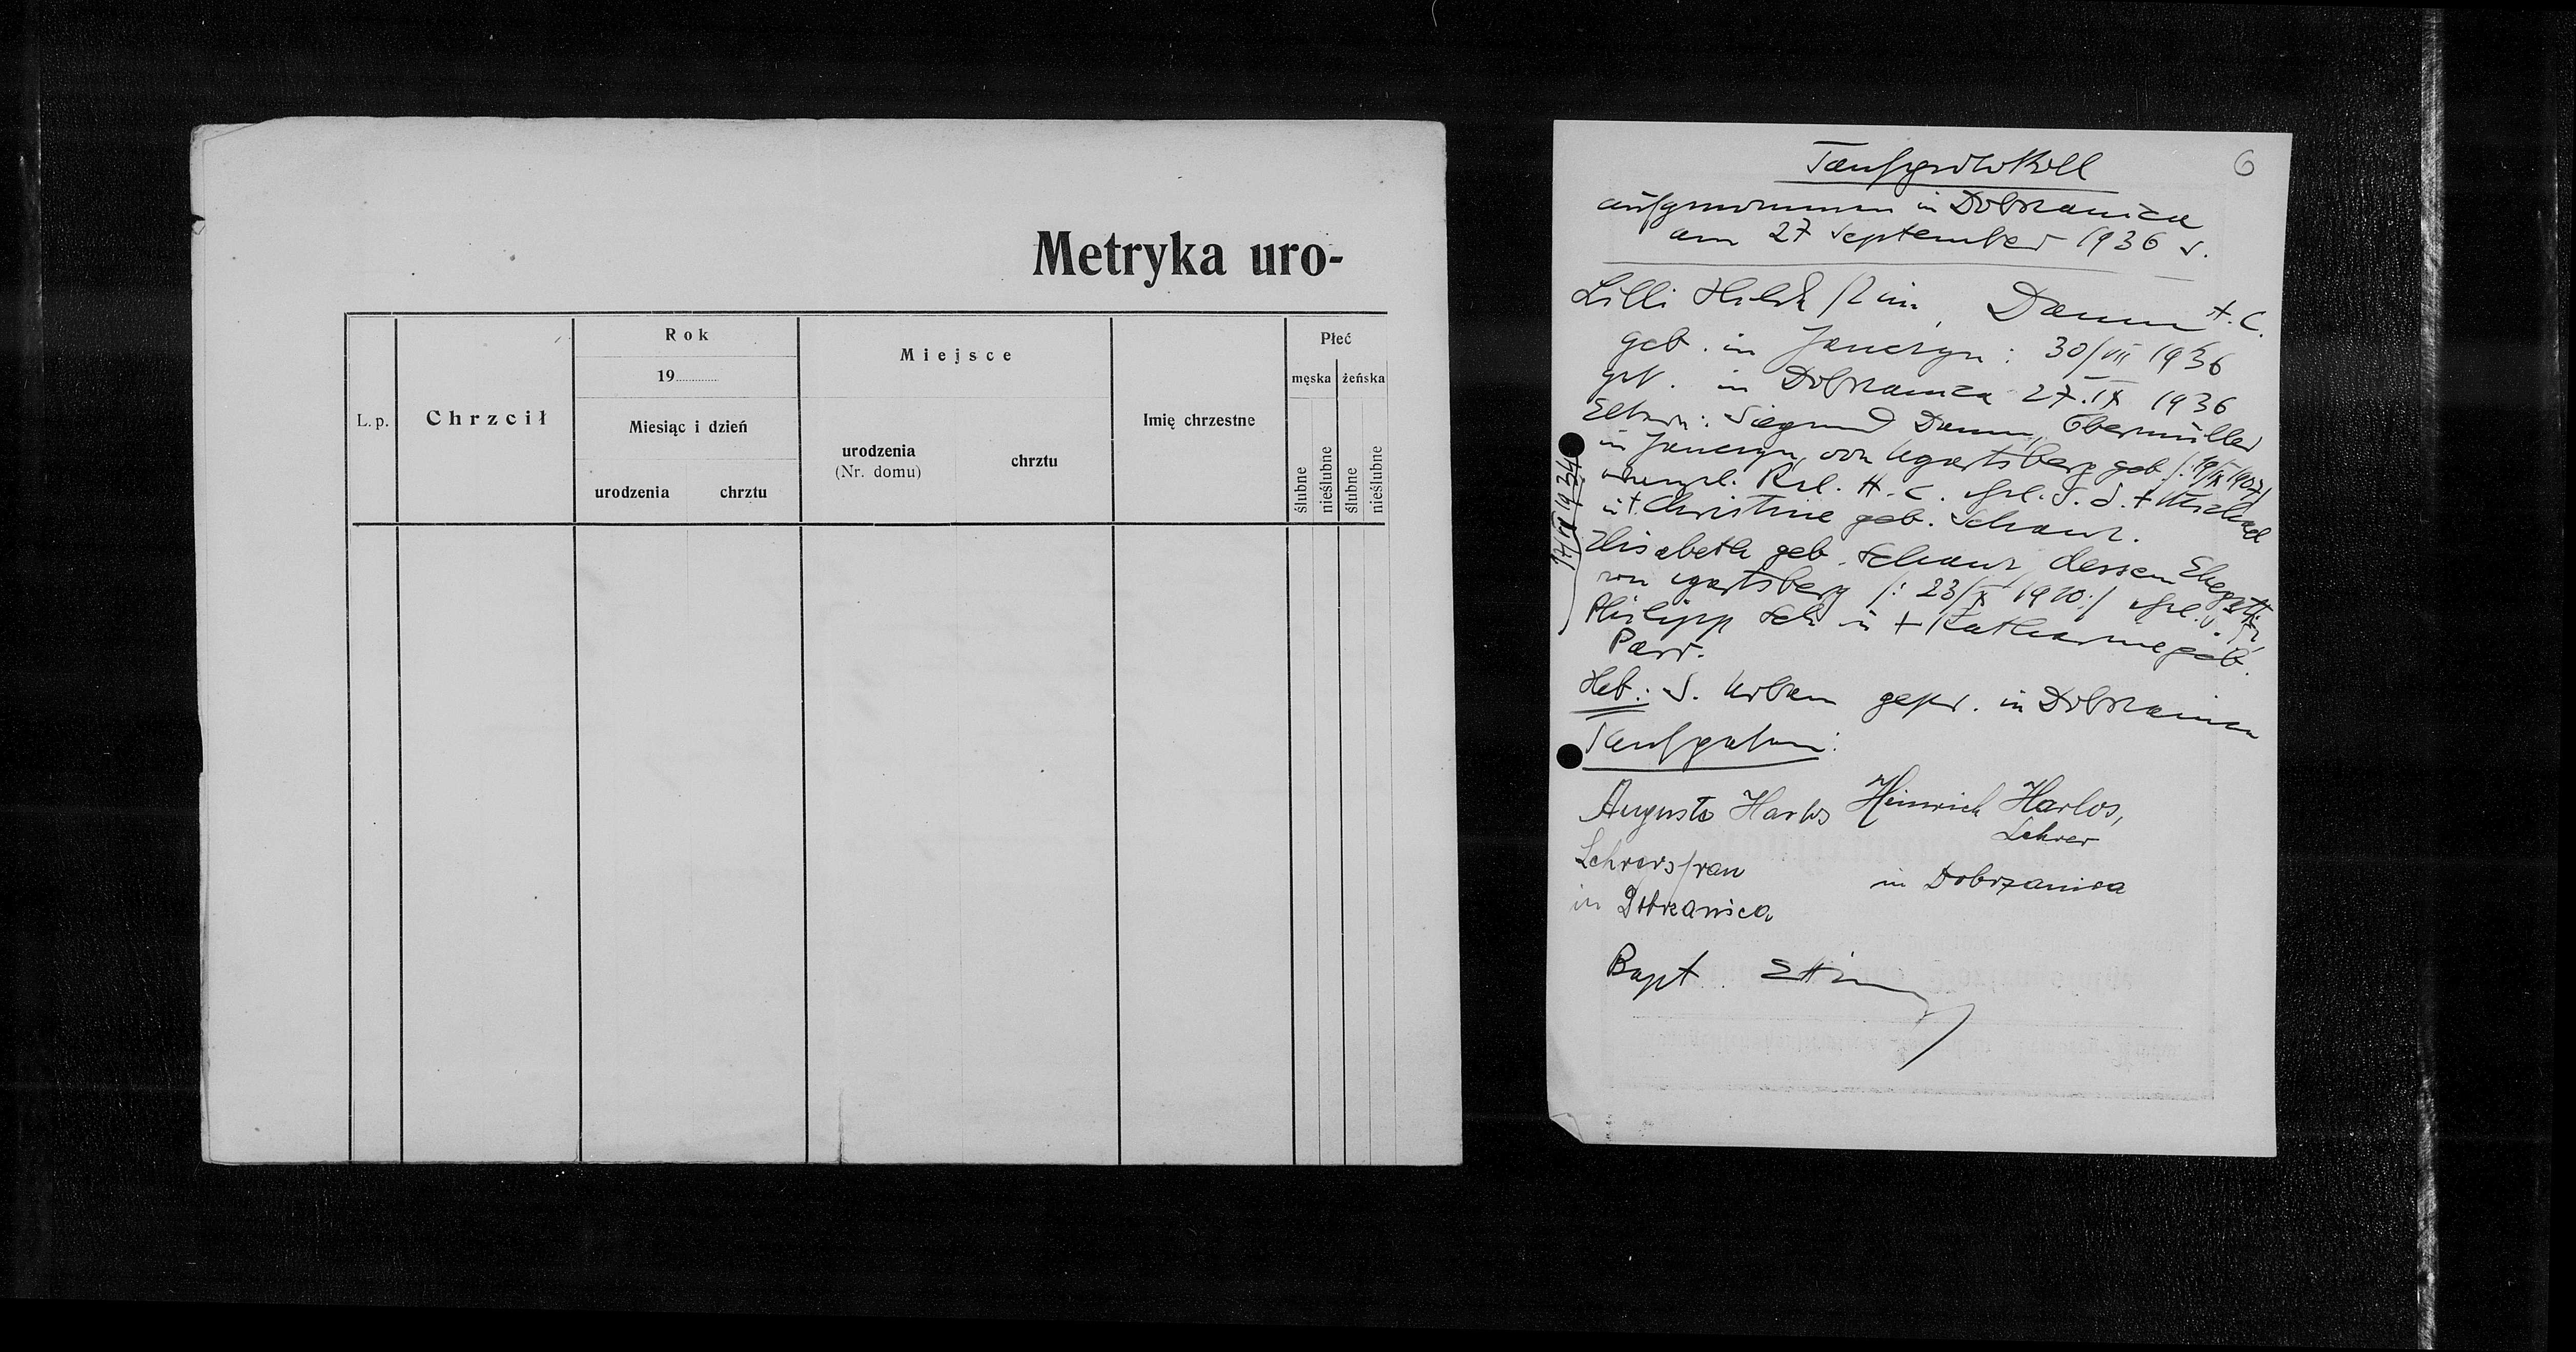 Metryka uro-
L. p.
Chrzcił
Rok
19
Miesiąc i dzień
urodzenia
chrztu
Miejsce
urodzenia
(Nr. domu)
chrztu
Imię chrzestne
Płeć
męska
żeńska
ślubne
nieślubne
ślubne
nieślubne
6
Taufprotokoll
aufgenommen in Dobrzanica
am 27 September 1936
Lilli Damm A. C.
geb. in Janczyn: 30/VII 1936
get. in Dobrzanica 27.IX 1936
Eltern: Siegmund Damm, Obermüller
in Janczyn, von Ugartsberg geb. /: 19/IX 1907/
H. C. S. d. † Michael
u † Christine geb. Schanz.
Elisabeth geb. Schanz, dessen Ehegattin
von Ugartsberg /: 23/X 1910 :/
Philipp Sch u † Katharine geb.
Parr.
Heb: S. Urban gepr. in Dobrzanica
Taufpaten:
Auguste Harlos
Lehrersfrau
in Dobrzanica
Heinrich Harlos,
Lehrer
in Dobrzanica
Bapt